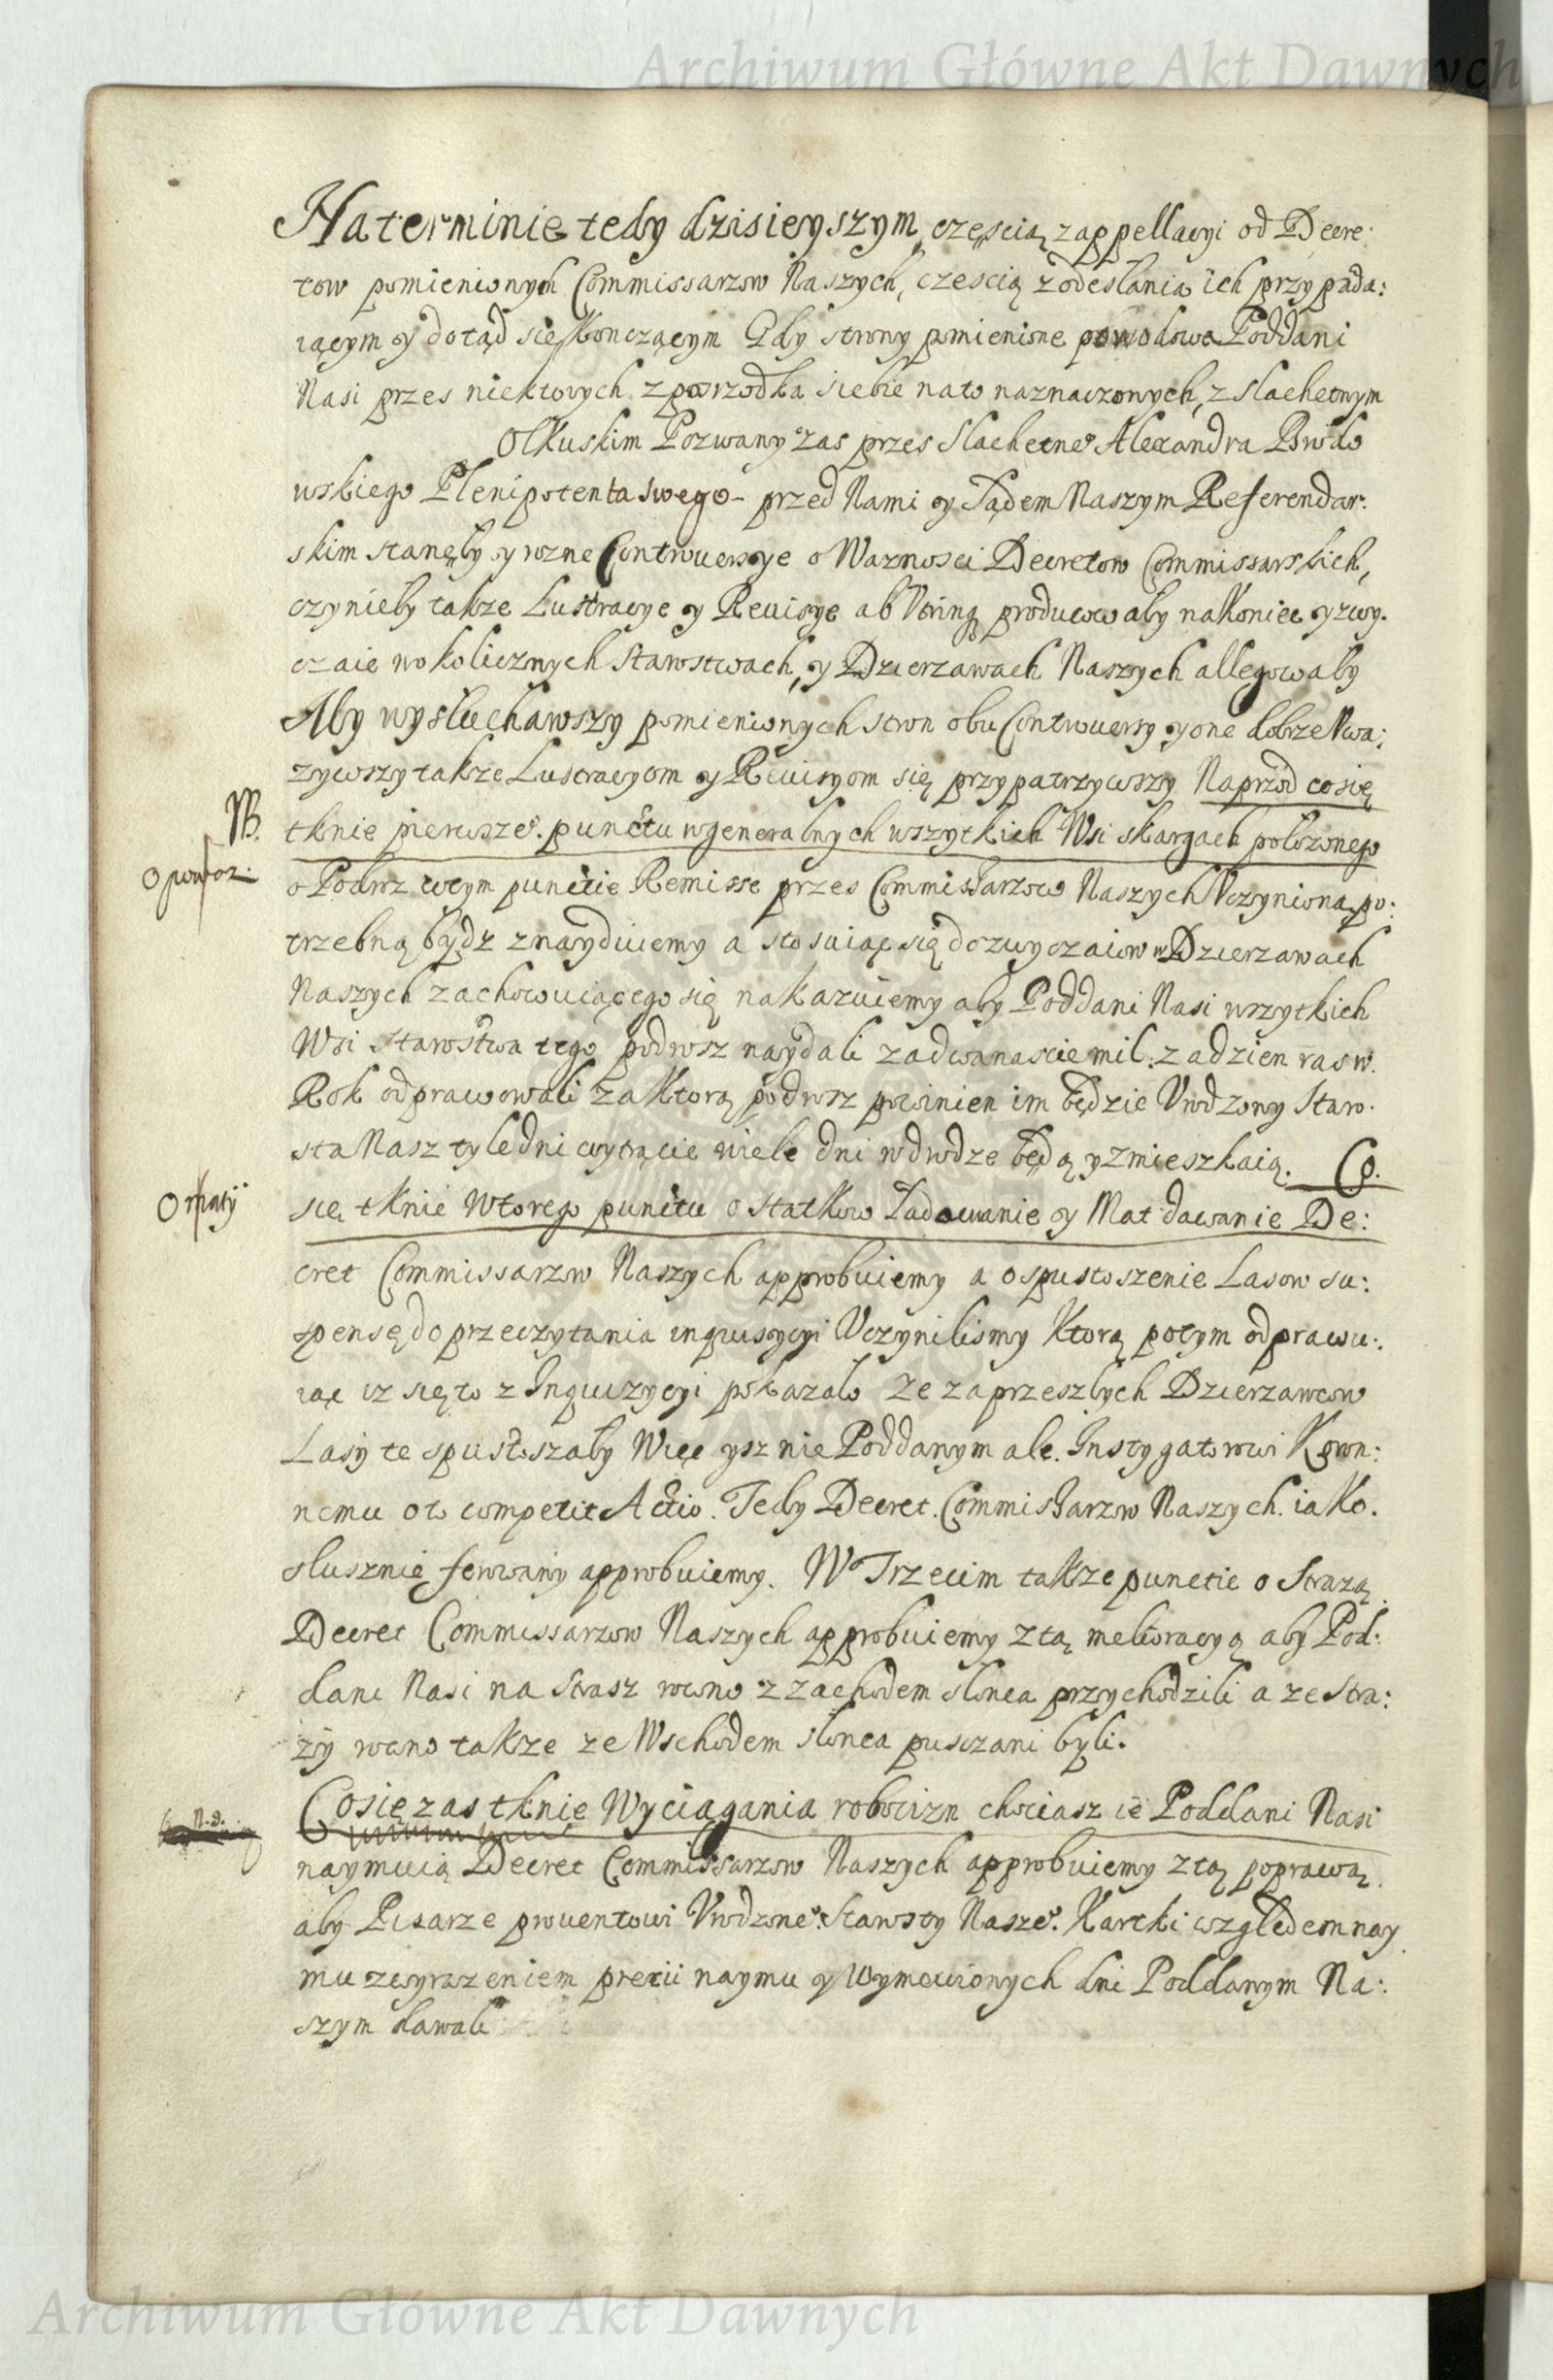 Archiwum Główne Akt Dawnych
Na terminie tedy dzisieyszym częscią z appellacyi od Decre:
tow pomienionych Commissarzow Naszych, czescią z odesłania ich przypada:
iącym y dotąd się kończącym Gdy strony pomienione powodowa Poddani
Nasi przes niektorych z posrzodka siebie na to naznaczonych, z Slachetnym
Olkuskim Pozwany zas przes Slachetne° Alexandra
wskiego Plenipotenta swego - przed Nami y Sądem Naszym Referendar:
skim stanęły y rozne Controuersye o Waznosci Decretow Commissarskich,
czynieły takze Lustracye y Reuisye ab Vtrinq producowały nakoniec y zwy:
czaie w okolicznych Starostwach, y Dzierzawach Naszych allegowały
Aby wysłuchawszy pomienionych stron obu Controuersy y one dobrze Vwa:
zywszy takze Lustracyom y Reuisyom się przypatrzywszy Naprzod co się
NB. tknie pierwsze°. punctu w generalnych wszytkich Wsi skargach połozonego
o Podroz w tym punctie Remisse przes Commissarzow Naszych Vczynioną po:
trzebną bydz znayduiemy a stosuiąc się do zwyczaiow w Dzierzawach
Naszych zachowuiącego się nakazuiemy aby Poddani Nasi wszytkich
Wsi Starostwa tego podrosz naydali za dwanascie mil. za dzien ras w.
Rok odprawowali za ktorą podrosz powinien im będzie Vrodzony Staro:
sta Nasz tyle dni wytrącic wiele dni w drodze będą y zmieszkaią. Co.
się tknie wtorego punctu o statkow Ładowanie y Mat dawanie De:
cret Commissarzow Naszych approbuiemy a o spustoszenie Lasow su:
spensę do przeczytania inquisycyi Vczynilismy ktorą potym odprawu:
iąc isz się to z Inquizycyi pokazało ze za przeszłych Dzierzawcow
Lasy te spustoszały Więc ysz nie Poddanym ale. Instygatorowi Koron:
nemu o to competit Actio. Tedy Decret. Commissarzow Naszych. iako.
słusznie ferowany approbuiemy. W Trzecim takze punctie o Strazą
Decret Commissarzow Naszych approbuiemy z tą melioracyą aby Pod:
dani Nasi na strasz rowno z zachodem słonca przychodzili a ze stra:
zy rowno takze ze Wschodem słonca pusczani byli.
Co się zas tknie Wyciągania robocizn chociasz ie Poddani Nasi
naymuią Decret Commissarzow Naszych approbuiemy z tą poprawą
aby Pisarze prouentowi Vrodzone°. Starosty Nasze°. Kartki względem nay
mu z wyrazeniem pretii naymu y wymowionych dni Poddanym Na:
szym dawali
Archiwum Główne Akt Dawnych